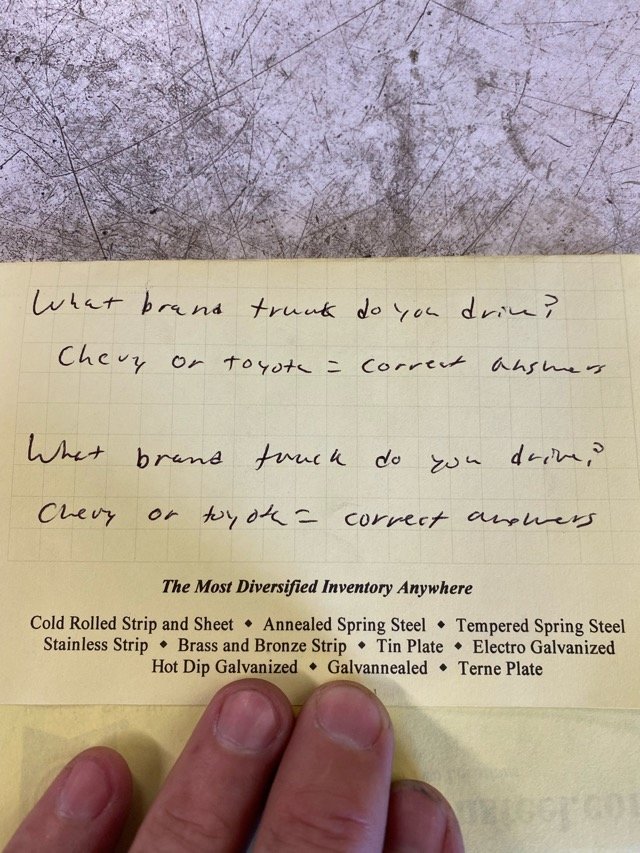 What brand truck do you drive?
Chevy or toyota = correct answers
What brand truck do you drive?
Chevy or toyota = correct answers
The Most Diversified Inventory Anywhere
Cold Rolled Strip and Sheet ◆ Annealed Spring Steel ◆ Tempered Spring Steel
Stainless Strip ◆ Brass and Bronze Strip ◆ Tin Plate ◆ Electro Galvanized
Hot Dip Galvanized ◆ Galvannealed ◆ Terne Plate